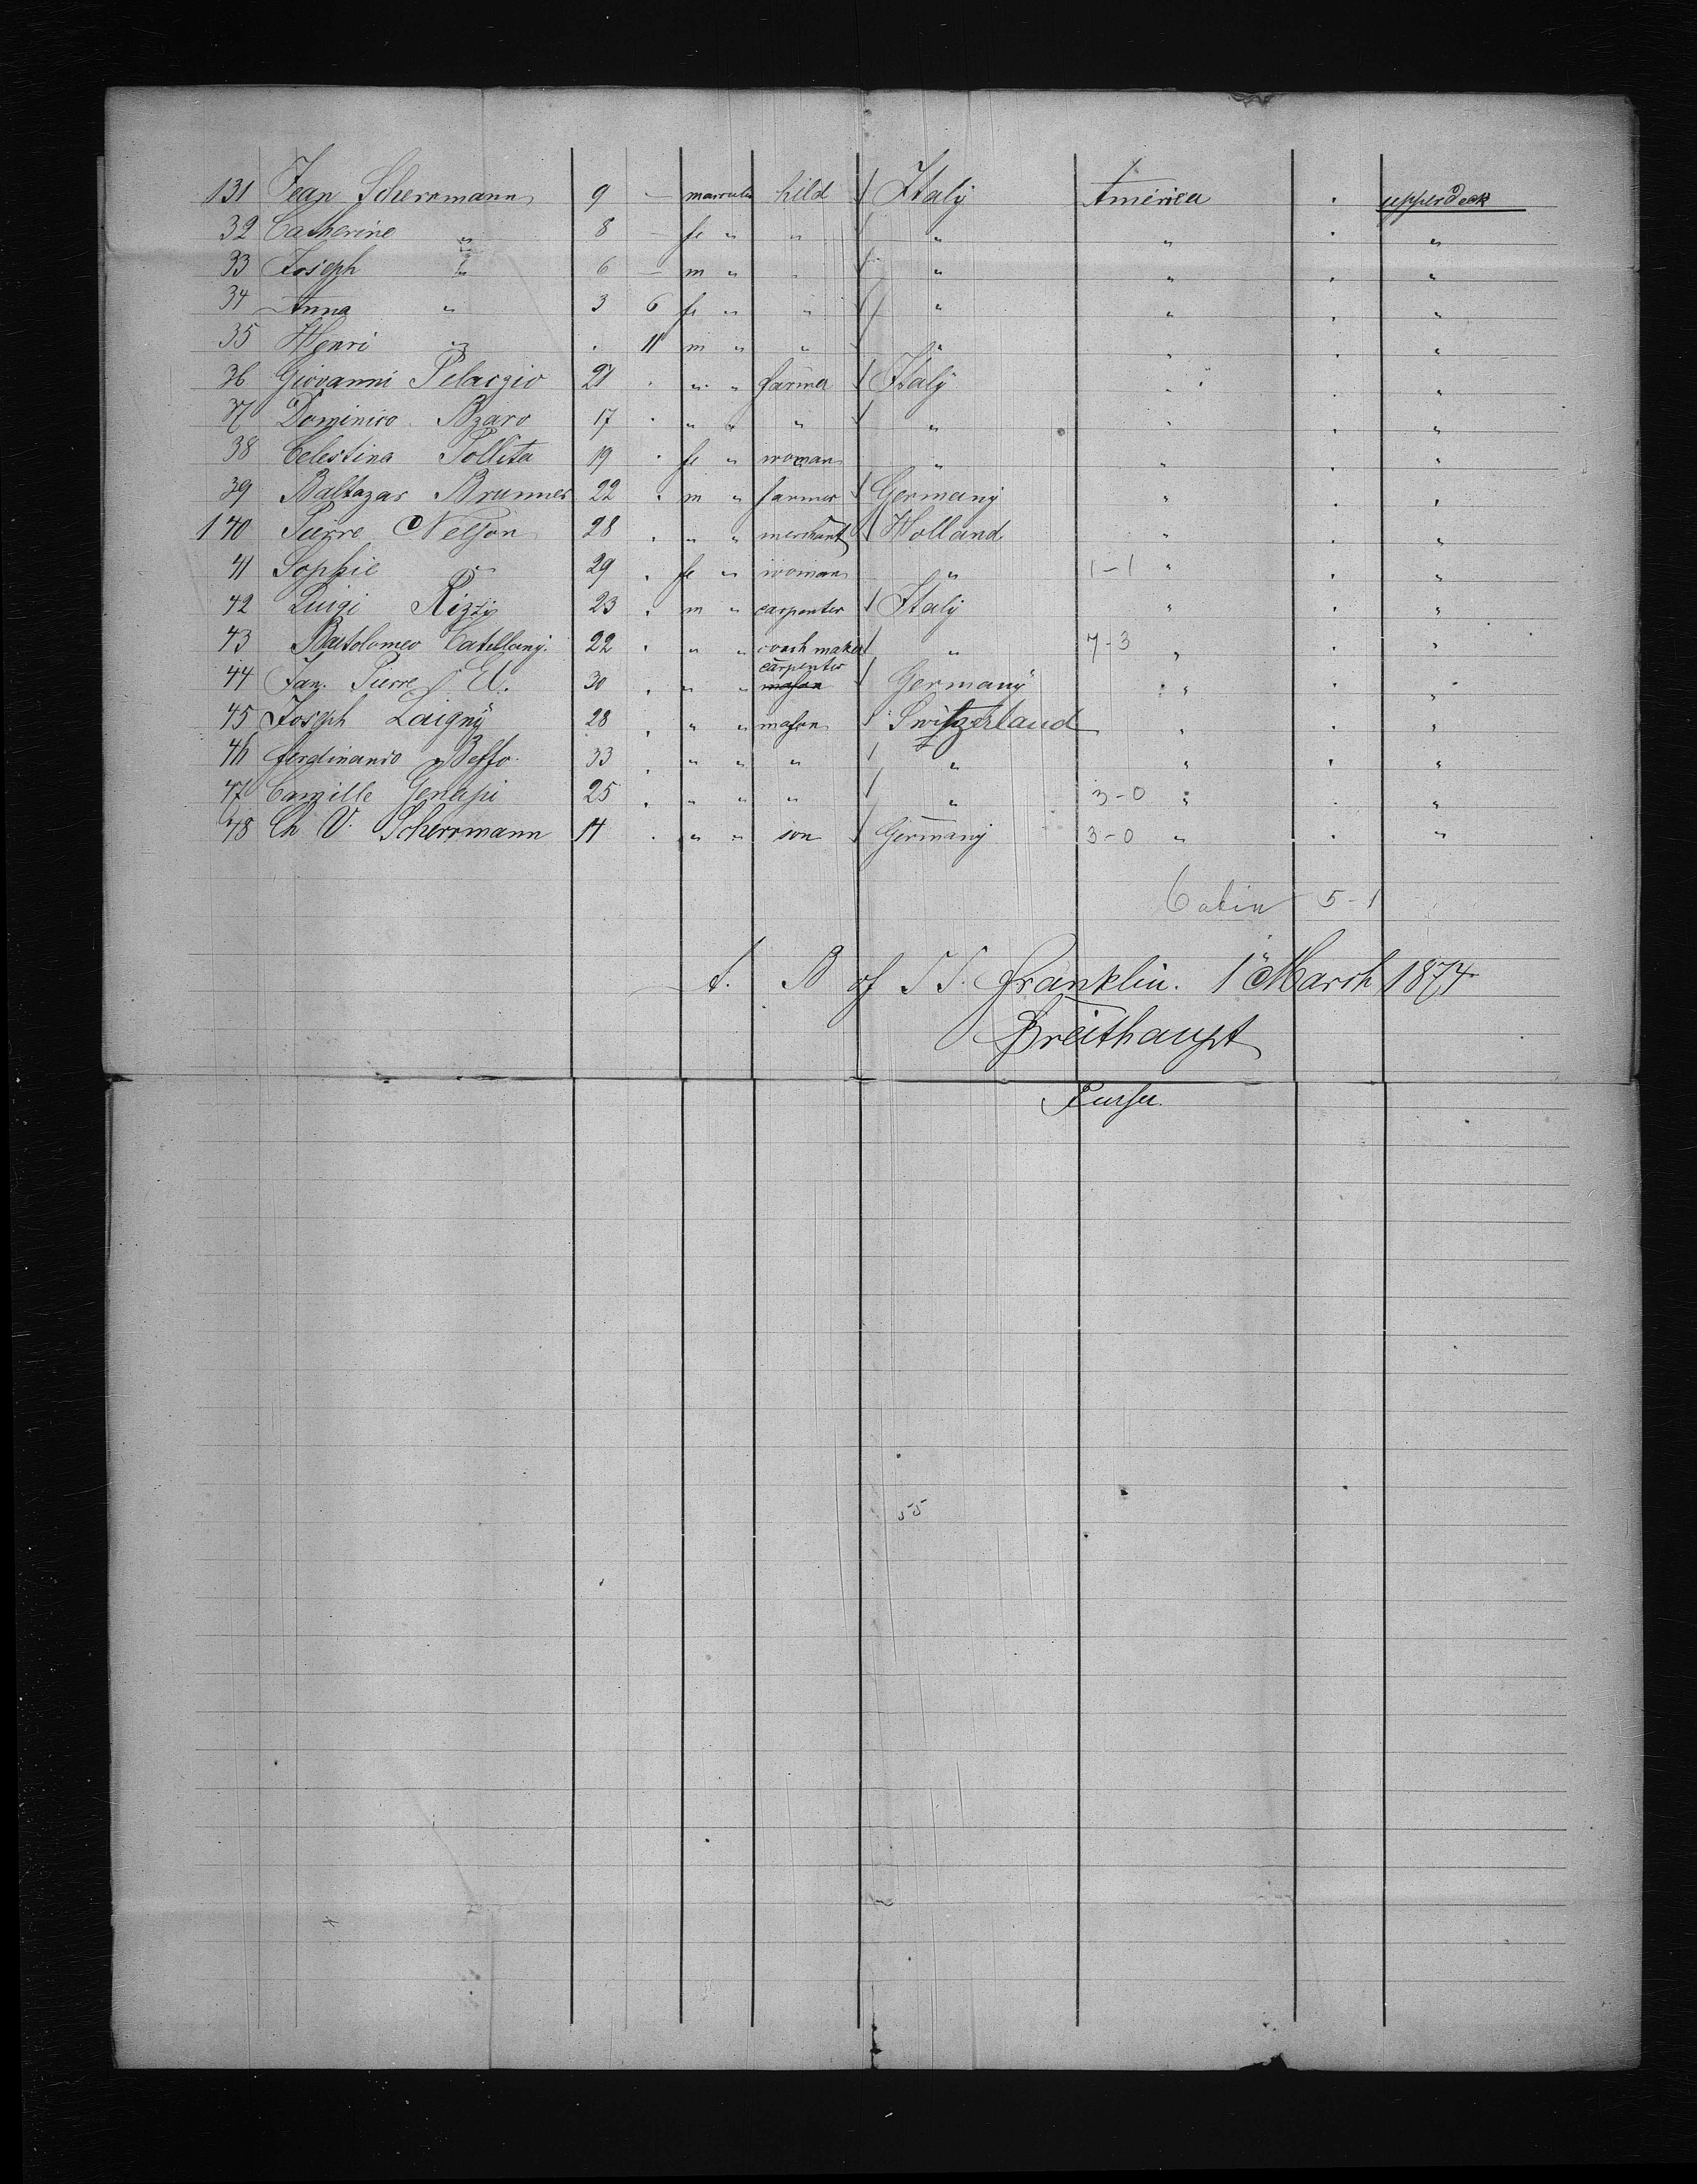 131 Jean Scherrmann 9 — masculin child / Italy America . upperdeck
32 Catherine " 8 — fe " " / " " . "
33 Joseph " 6 — m " " / " " . "
34 Anna " 3 6 fe " " / " " . "
35 Henri " . 11 m " " / " " . "
36 Giovanni Pelargio 27 . " " farmer / Italy " . "
37 Dominico Bzaro 17 . " " " / " " . "
38 Celestina Pollita 19 . fe " woman " " . "
39 Baltazar Brunner 22 . m " farmer / Germany " . "
140 Pierre Nelson 28 . " " merchant / Holland " . "
41 Sophie " 29 . fe " woman " 1-1 " . "
42 Luigi Rizzi 23 . m " carpenter / Italy " . "
43 Bartolomeo Catellany. 22 . " " coach maker / " 7-3 " . "
44 Jan. Pierre El. 30 . " " mason carpenter / Germany " . "
45 Joseph Laigny 28 . " " mason / Switzerland " . "
46 Ferdinando Beffo. 33 . " " " / " " . "
47 Camille Genassi 25 . " " " / " 3-0 " . "
48 Ch V. Scherrmann 14 . " " son / Germany 3-0 " . "
Cabin 5-1
A. B of S S. Franklin. 1" March 1874
Breithaupt
Purser.
55